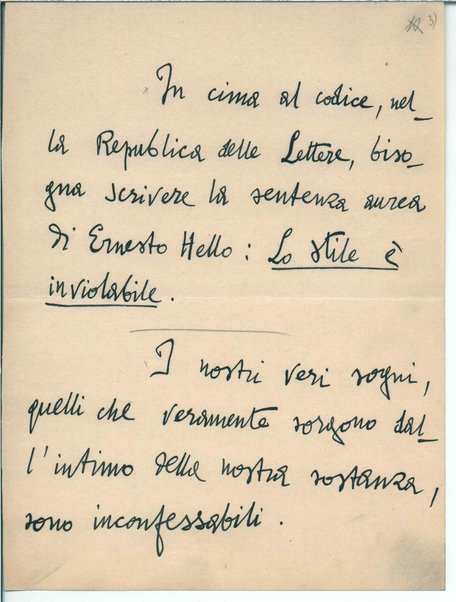 3)
In cima al codice, nel-
la Repubblica delle Lettere, biso-
gna scrivere la sentenza aurea
di Ernesto Hello: Lo stile è
inviolabile.
I nostri veri sogni,
quelli che veramente sorgono dal-
l'intimo della nostra sostanza,
sono inconfessabili.